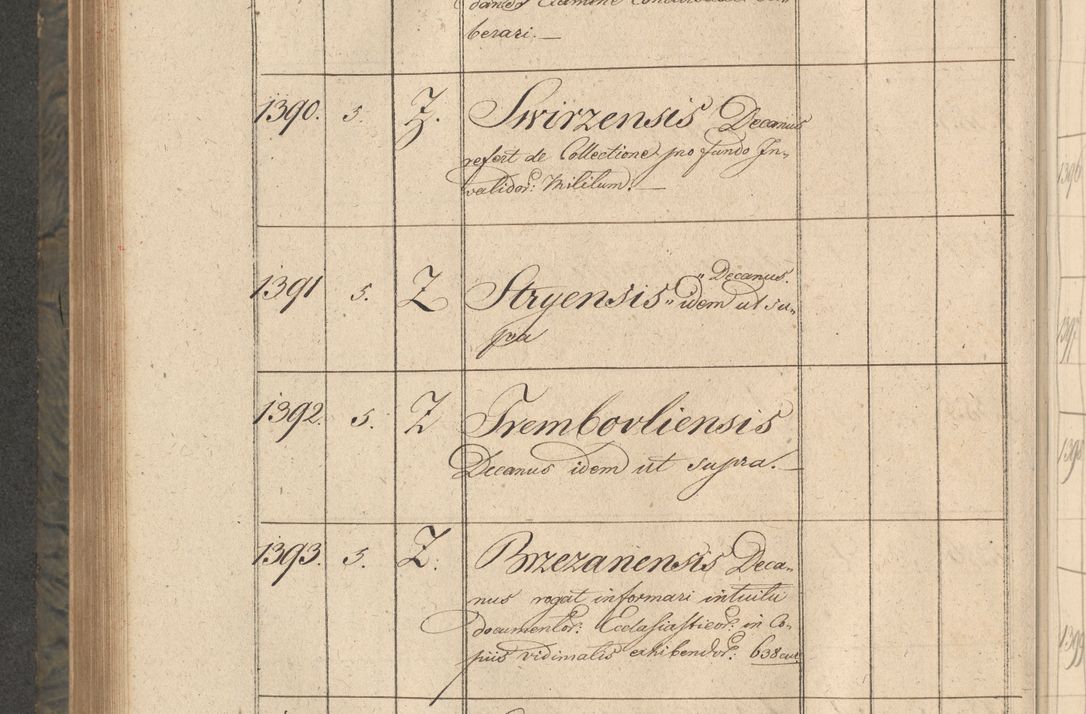 berari. —
1390. 5. Z. Swirzensis Decanus
refert de Collectione pro fundo In„
validor: Militum. —
„ Decanus.
1391 5. Z Stryensis „ idem ut su„
pra
1392. 5. Z Trembovliensis
Decanus idem ut supra. —
1393. 5. Z. Brzezanensis Deca„
nus rogat informari intuitu
documentor: Ecclasiasticor: in Co„
piis vidimatis exhibendor:
139